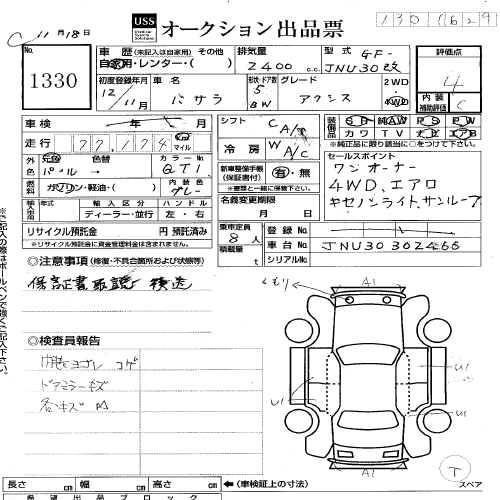 11月18日
USS
Used car System Solutions
オークション出品票
No.
1330
車歴(未記入は自家用) その他
自家用・レンター・( )
排気量
2400 c.c.
型式
GF-
JNU30 改
評価点
4
内装
補助評価
C
初度登録年月
12/11月
車名
バサラ
型状・ドア数
5
BW
グレード
アクシス
2WD・
4WD
車検 年 月
走行 77,174 km マイル
外色 元色 色替
パール→
カラーNo.
QT1
燃料 ガソリン・軽油・( )
内装色
グレー
輸入車 輸入区分 ハンドル
ディーラー・並行 左・右
リサイクル預託金 円 預託済み
※リサイクル預託金に資金管理料金は含まれます。
シフト
C A/T
冷房
W A/C
新車整備手帳
(保証書付) 有・無
※書類と一緒に保管下さい。
名義変更期限
月 日
乗車定員 8人
積載量 t
装備品 SR 純AW PS PW
カワ TV ナビ エアB
※純正品に限り該当に○をつけて下さい
セールスポイント
ワンオーナー
4WD、エアロ
キセノンライト、サンルーフ
登録No.
車台No. JNU30 302466
シリアルNo.
◎注意事項(修復・不具合箇所および状態等)
保証書取説 後送
◎検査員報告
内装ヨゴレ コゲ
ドアミラーキズ
各キズ
くもり
A1
U1
U1
U1
A2
T
スペア
長さ cm 幅 cm 高さ cm ←(車検証上の寸法)
希望出品ブロック
※ご記入の際はボールペンで強くご記入下さい。